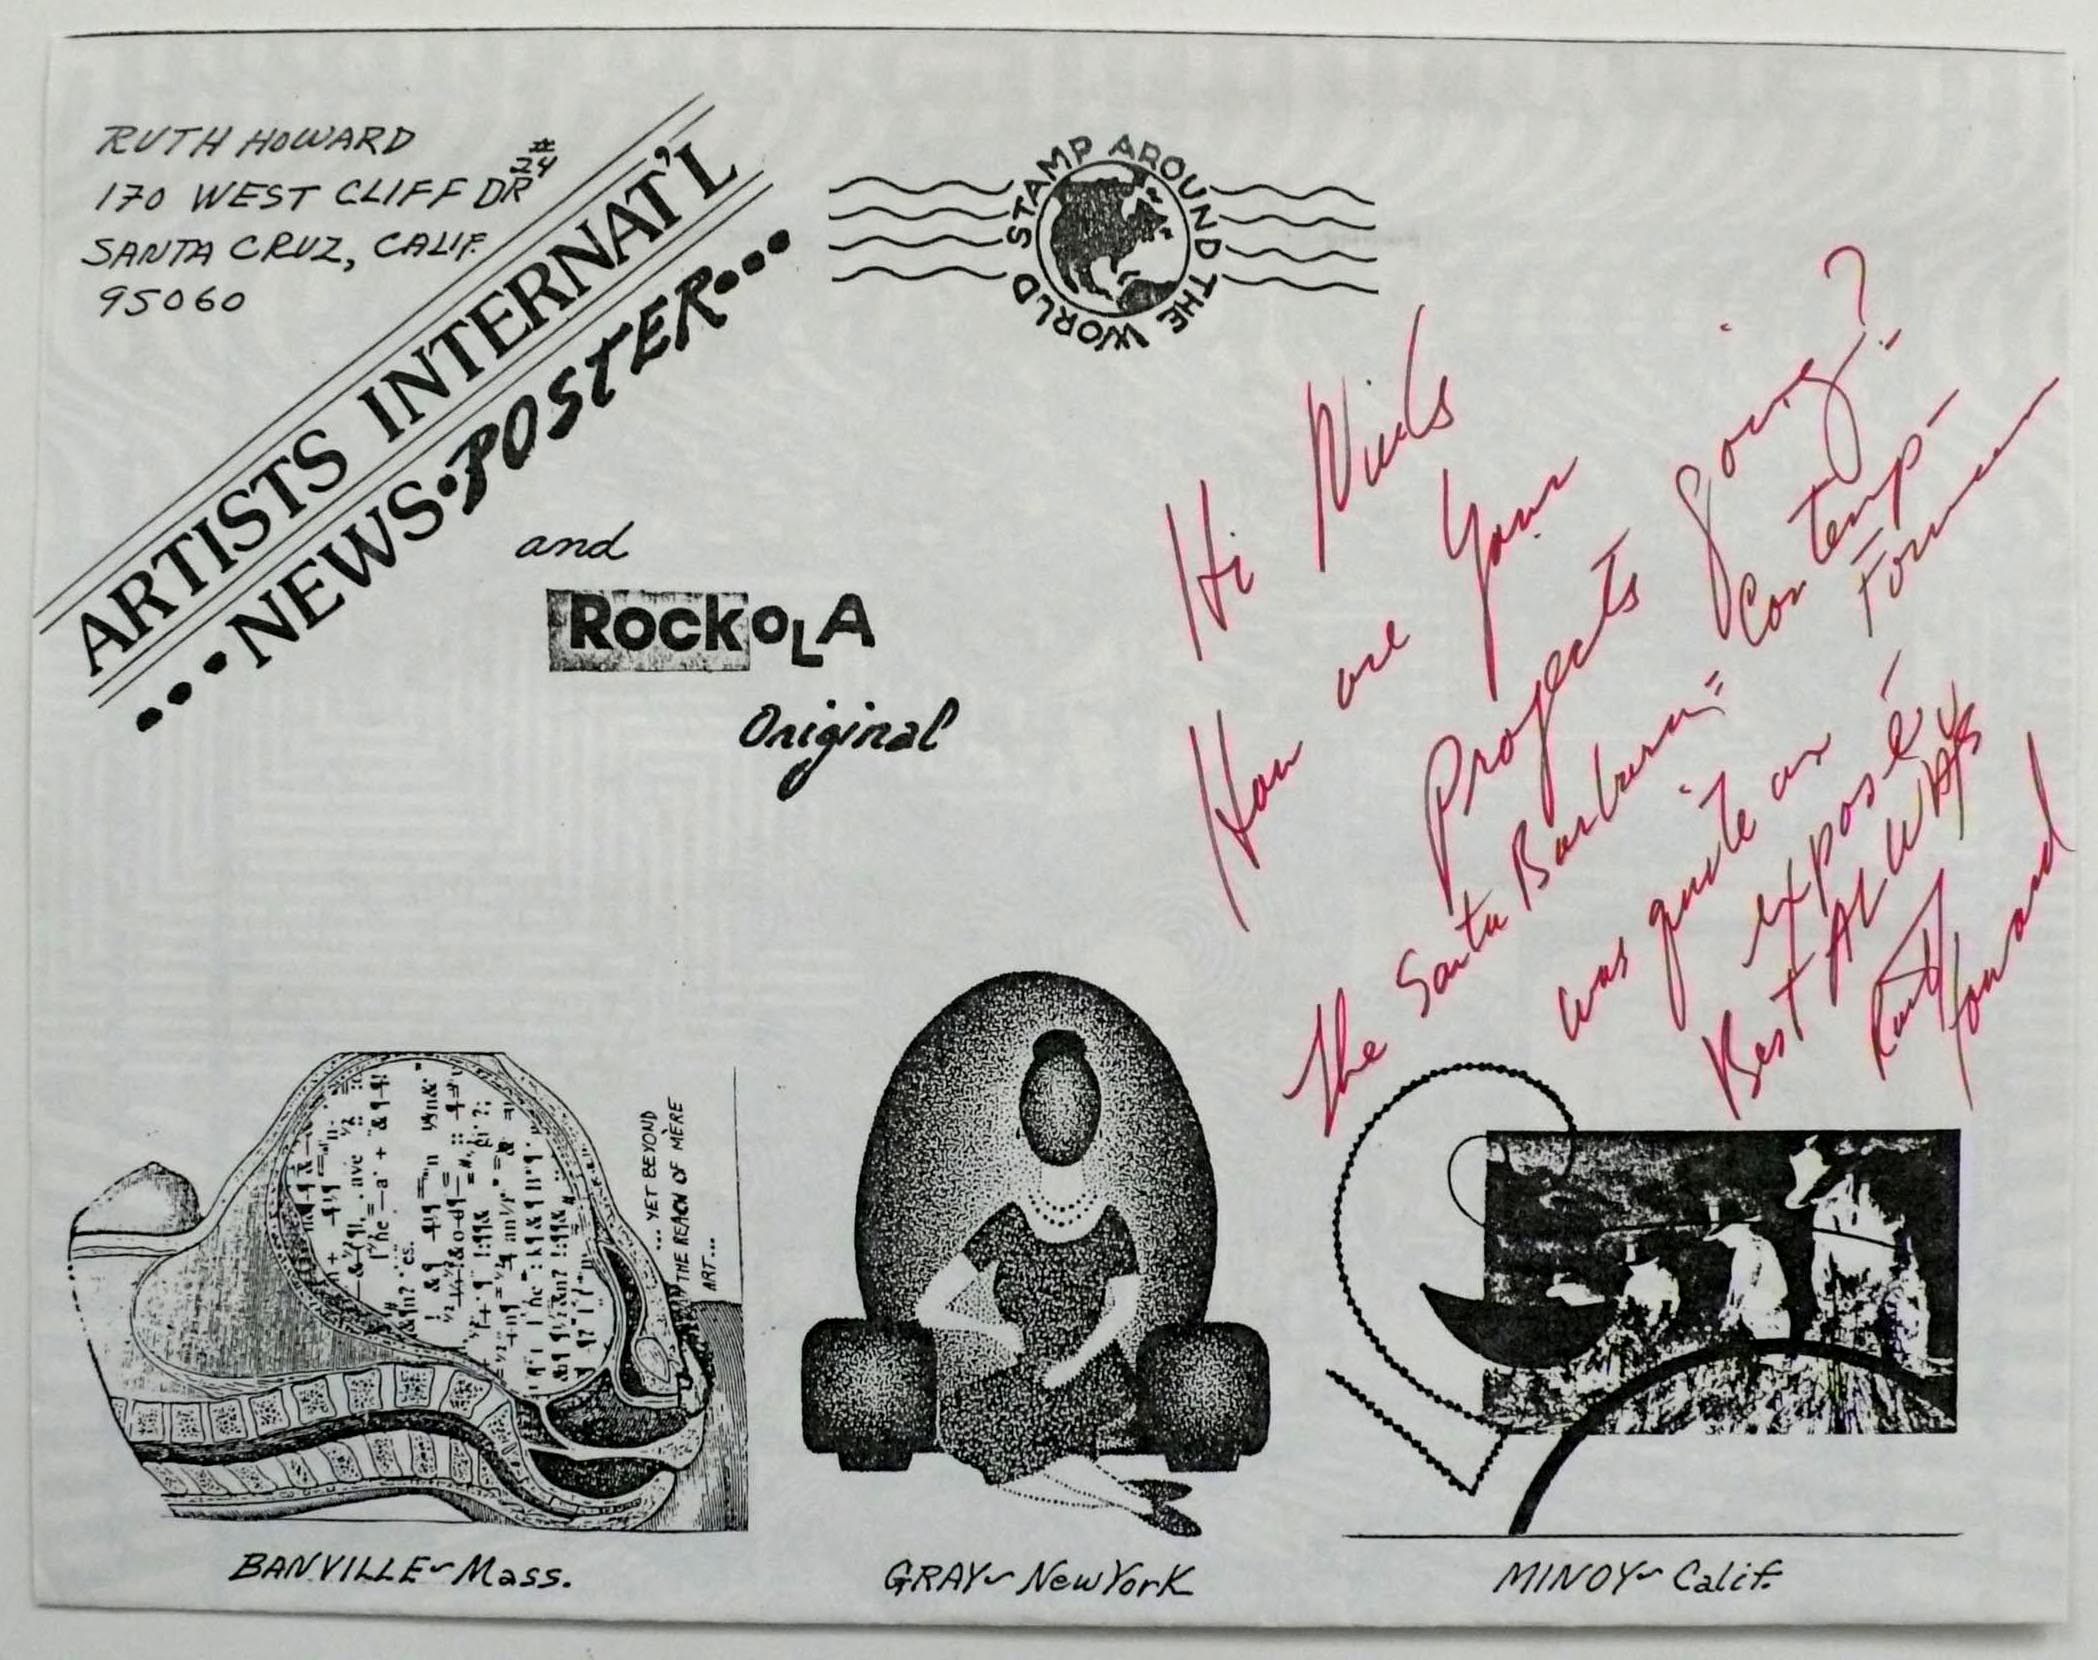 RUTH HOWARD
170 WEST CLIFF DR #24
SANTA CRUZ, CALIF.
95060
ARTISTS INTERNAT'L
...NEWS•POSTER...
and
ROCKOLA
Original
STAMP AROUND THE WORLD
Hi Niels
How are Your
Projects going?
The Santa Barbara = Contemp-
Forum
was quite an
exposé -
Best ALWAYS
Ruth Howard
... YET BEYOND
THE REACH OF MERE
ART...
BANVILLE~Mass.
GRAY~New York
MINOY~Calif.